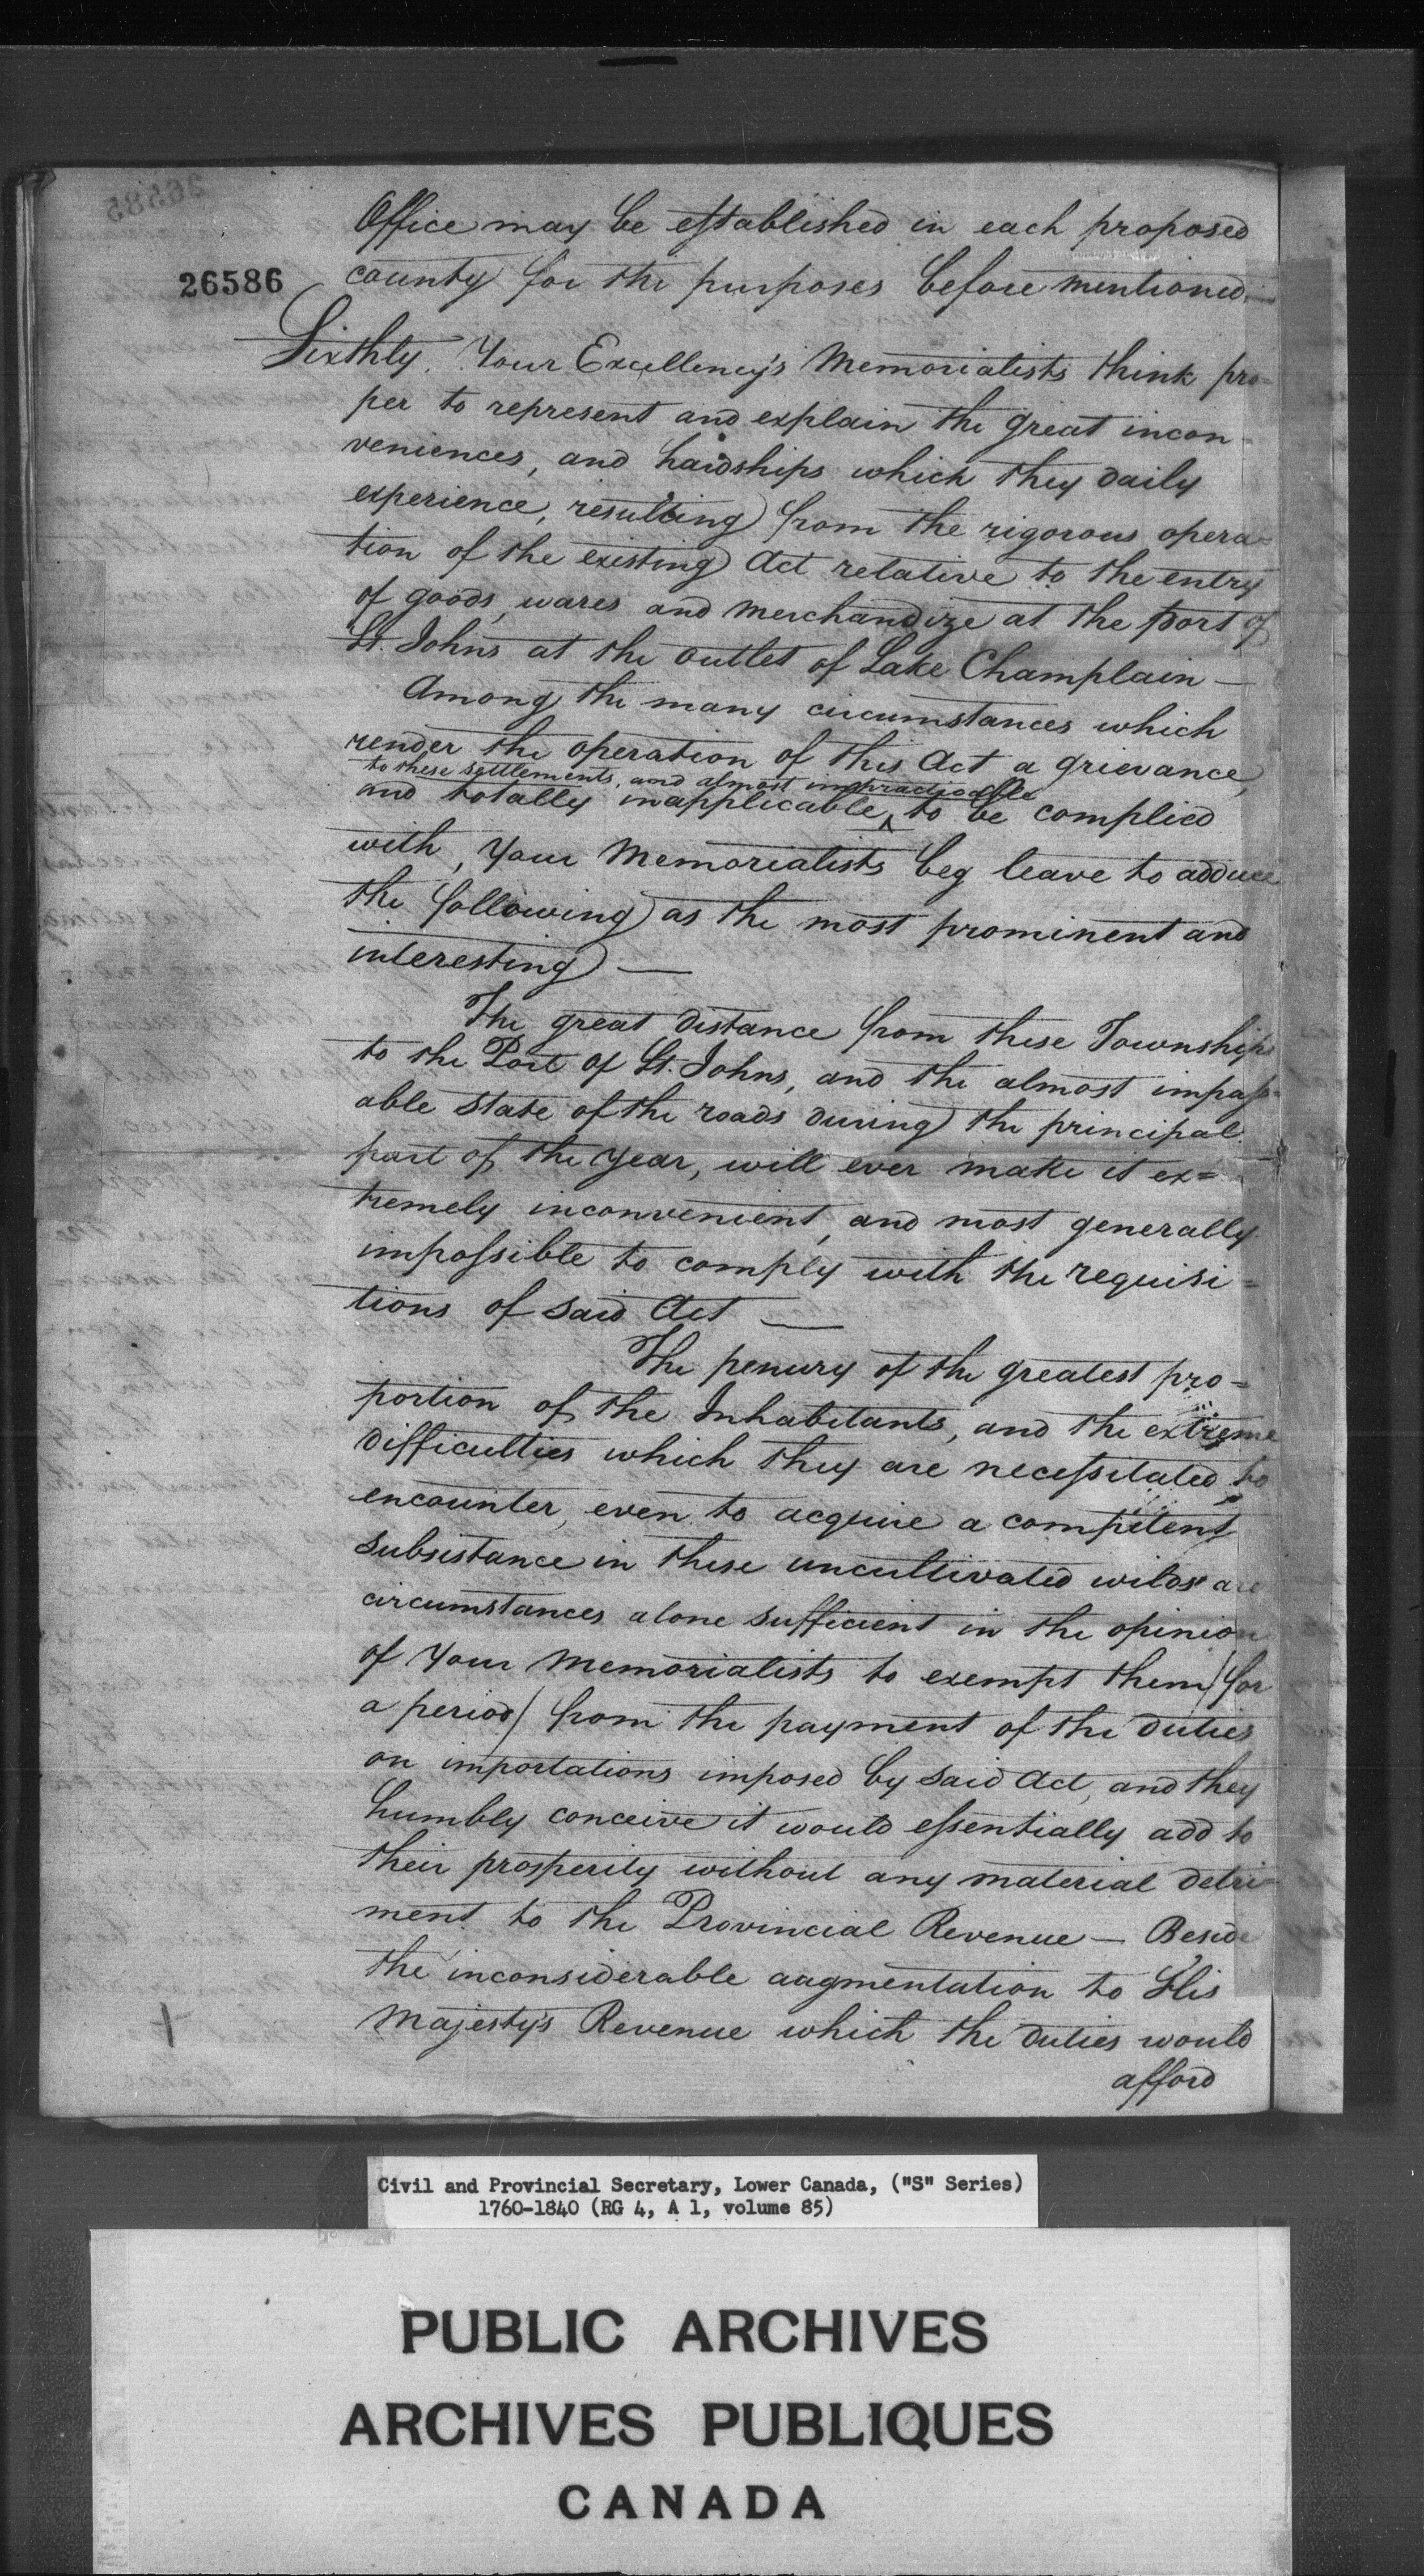 Office may be established in each proposed
26586
county for the purposes before mentioned.
Sixthly. Your Excellency's Memorialists think pro=
per to represent and explain the great incon-
veniences, and hardships which they daily
experience, resulting from the rigorous opera=
tion of the existing Act relative to the entry
of goods, wares and Merchandize at the port of
St. Johns at the outlet of Lake Champlain —
Among the many circumstances which
render the operation of this Act a grievance,
to these settlements, and almost impracticable
and totally inapplicable ^ to be complied
with, Your Memorialists beg leave to adduce
the following as the most prominent and
interesting —
The great distance from these Townships
to the Port of St. Johns, and the almost impass=
able state of the roads during the principal
part of the year, will ever make it ex=
tremely inconvenient, and most generally
impossible to comply with the requisi=
tions of said Act —
The penury of the greatest pro=
portion of the Inhabitants, and the extreme
difficulties which they are necessitated to
encounter, even to acquire a competent
subsistance in these uncultivated wilds are
circumstances alone sufficient in the opinion
of Your Memorialists to exempt them / for
a period / from the payment of the duties
on importations imposed by said Act, and they
humbly conceive it would essentially add to
their prosperity without any material detri=
ment to the Provincial Revenue — Beside
the inconsiderable augmentation to His
Majesty's Revenue which the duties would
afford
Civil and Provincial Secretary, Lower Canada, ("S" Series)
1760-1840 (RG 4, A 1, volume 85)
PUBLIC ARCHIVES
ARCHIVES PUBLIQUES
CANADA